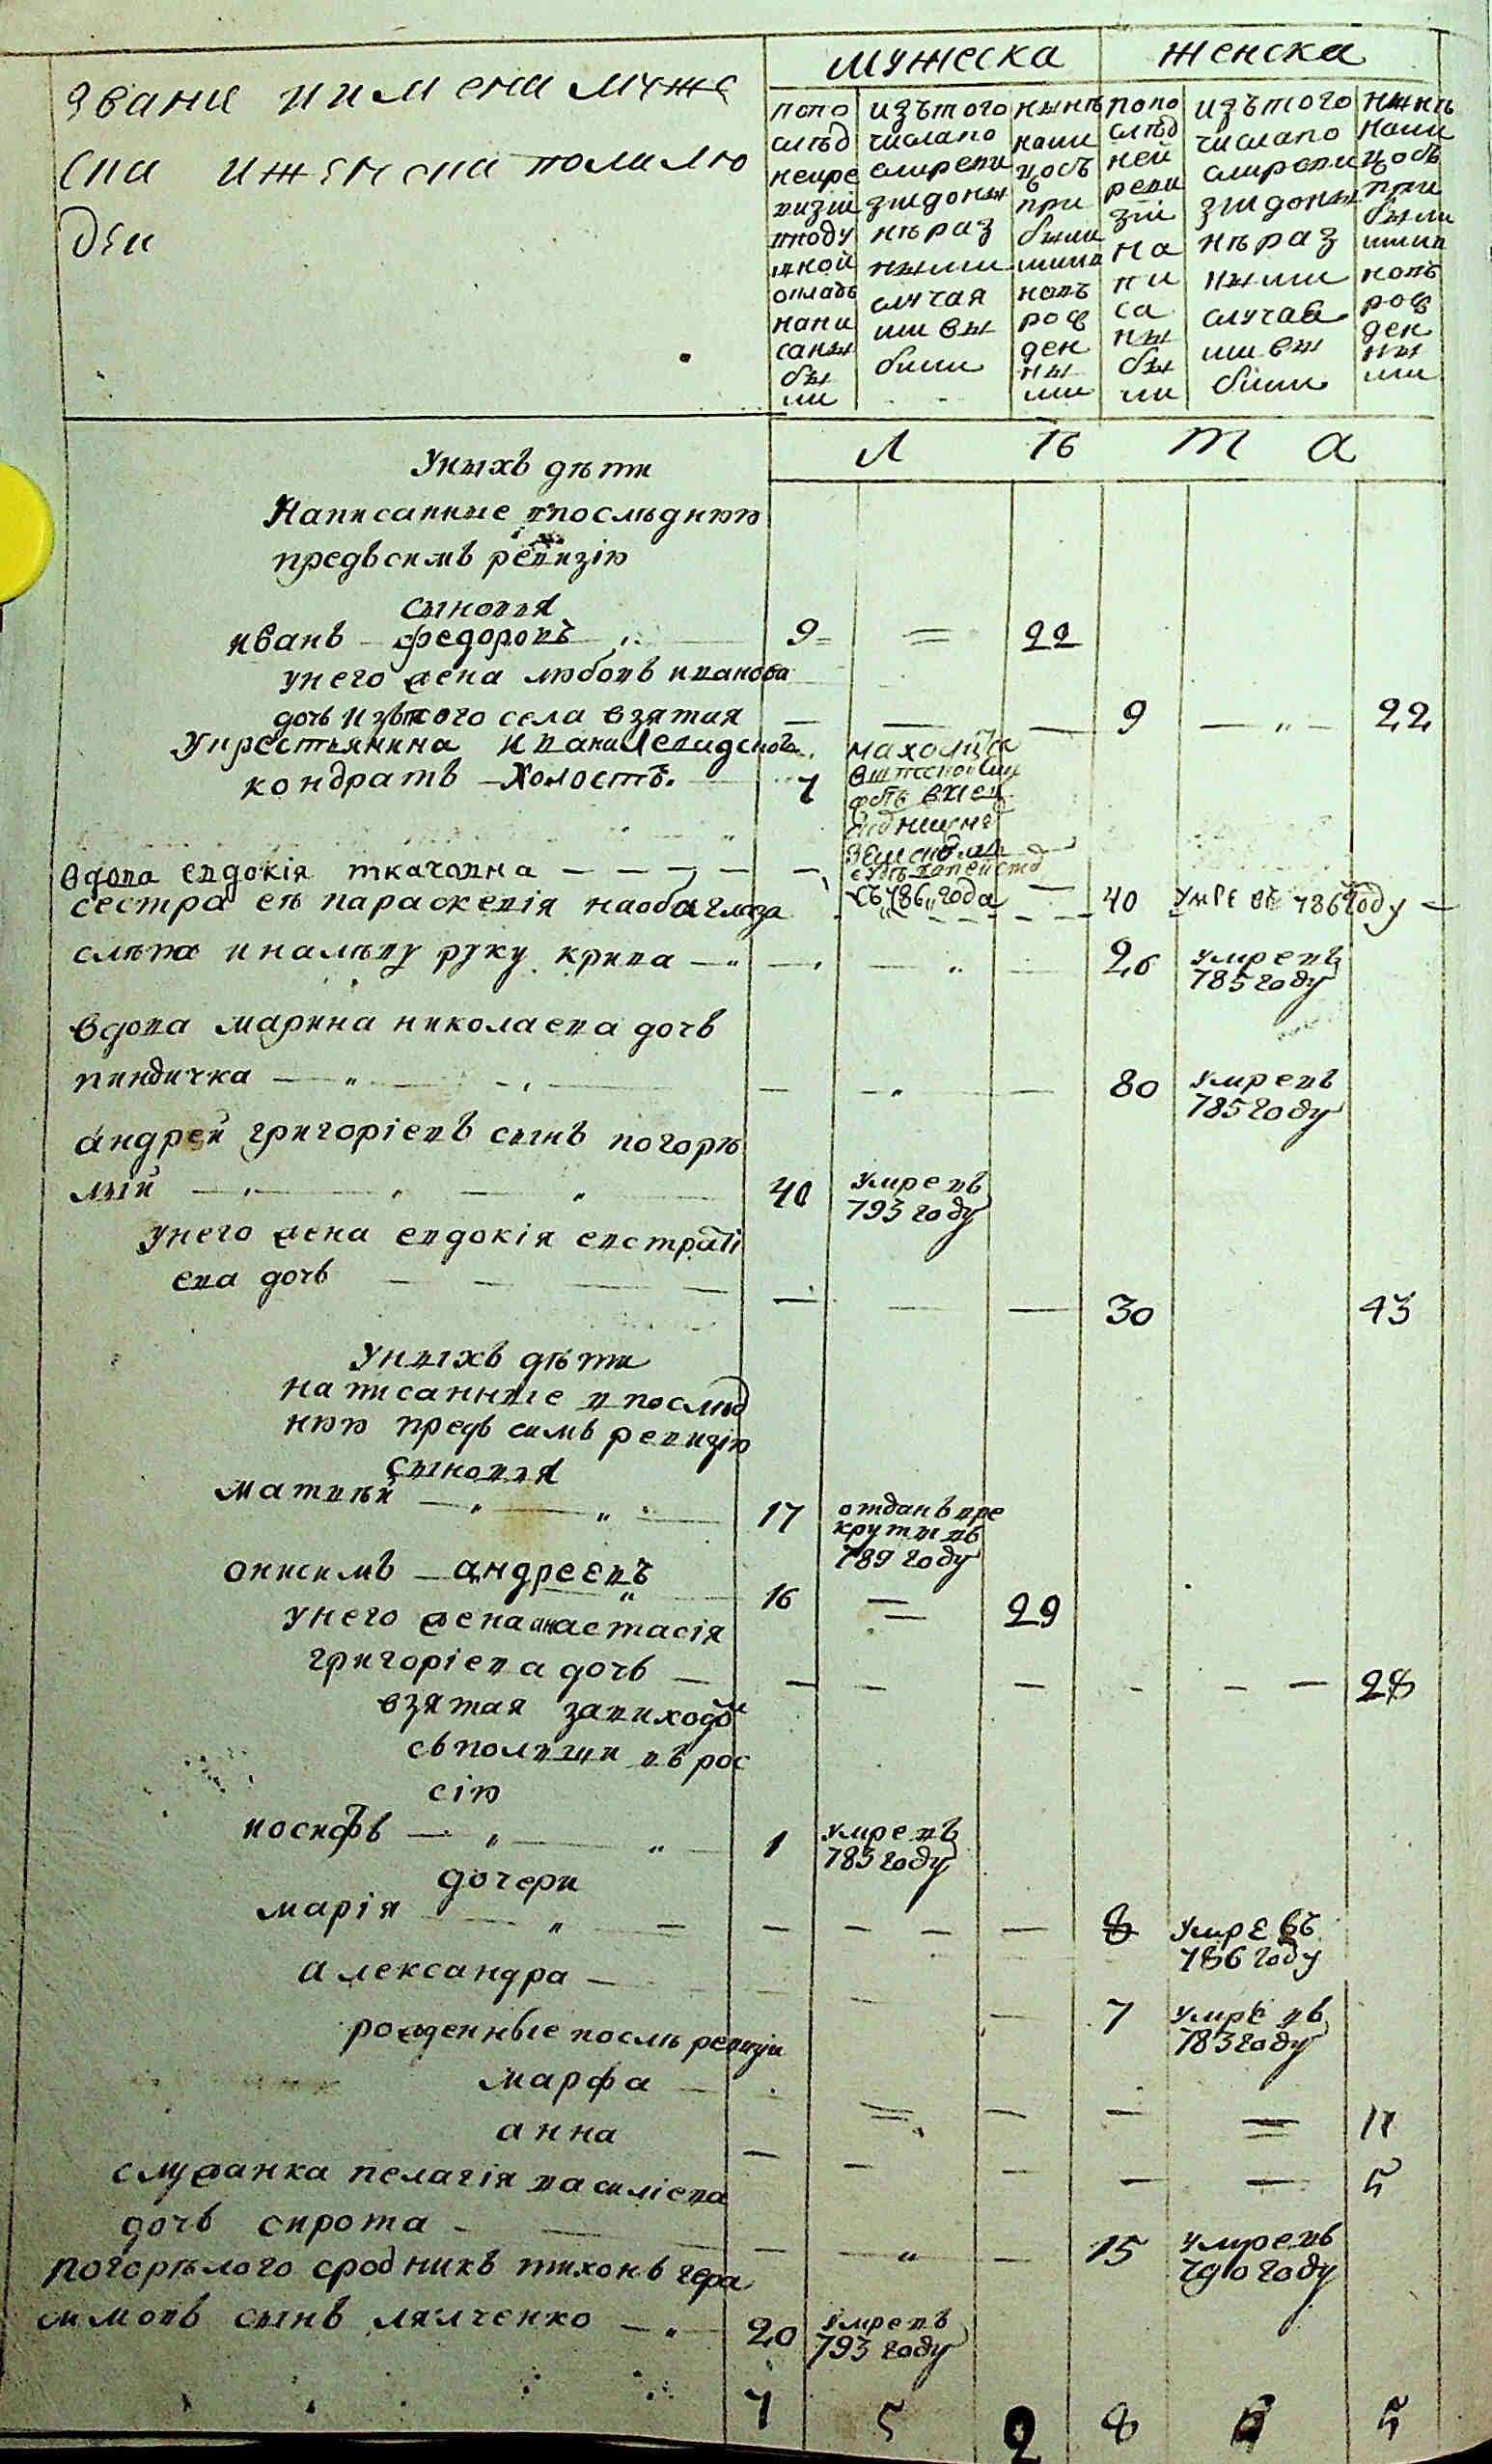 мужеска женска
звание и имена муже
ска и женска пола лю
деи
попо слѣд ней ре визіи вподу шной окладъ напи саны бы ли
изътого числапо слиреви зіи доны нѣраз ными случая ми вы были
нынѣ нали цобъ при были ми и в новъ рож ден ны ми
попо слѣд ней реви зіи на пи са ны бы ли
изътого числапо слиреви зіи доны нѣраз ными случаа ми вы были
нынѣ нали цобъ при были ми и в новъ рож ден ны ми
Л ѣ т а
Унихъ дѣти
Написанные впослѣднюю
предъсимъ ревизію
сыновья
иванъ — федоровъ 9 = 22
унего жена любовъ иванова
дочь изътого села взятая — — — 9 — „ — 22
кондратъ — Холостъ. 7
съ 786 „ года
вдова евдокія ткачовна — — — — — 40 умре въ 786 году —
сестра еѣ параскевія наоба глаза
слѣпа иналѣву руку крива — „ — „ — 26 умре въ
785 году
вдова марина николаева дочь
пиндичка — „ — — „ — 80 умре въ
785 году
андрей григоріевъ сынъ погорѣ
лый — „ — „ 40 умре въ
793 году
унего жена евдокія евстраті
ева дочь — — — — 30 43
Унихъ дѣти
написанные впослѣд
нюю предъ симъ ревизію
сыновья
матвѣй — „ — „ 17 отданъ вре
круты въ
789 году
онисимъ — андреевъ 16 = 29
унего жена анастасія
григоріева дочь — — — — — — — 28
взятая завиходом
съполщи въ рос
сію
иосифъ — „ — „ 1 умре въ
785 году
дочери
марія „ — — — — — 8 умре въ
786 году
александра — — 7 умре въ
783 году
рожденные послѣ ревизіи
марфа — = — — = 11
анна — — — — — 5
служанка пелагія василіева
дочь сирота — — „ — 15 умре въ
790 году
погорѣлого сродникъ тихонъ гера
симовъ сынъ лялченко — „ 20 умре въ
793 году
7 5 2 8 6 5